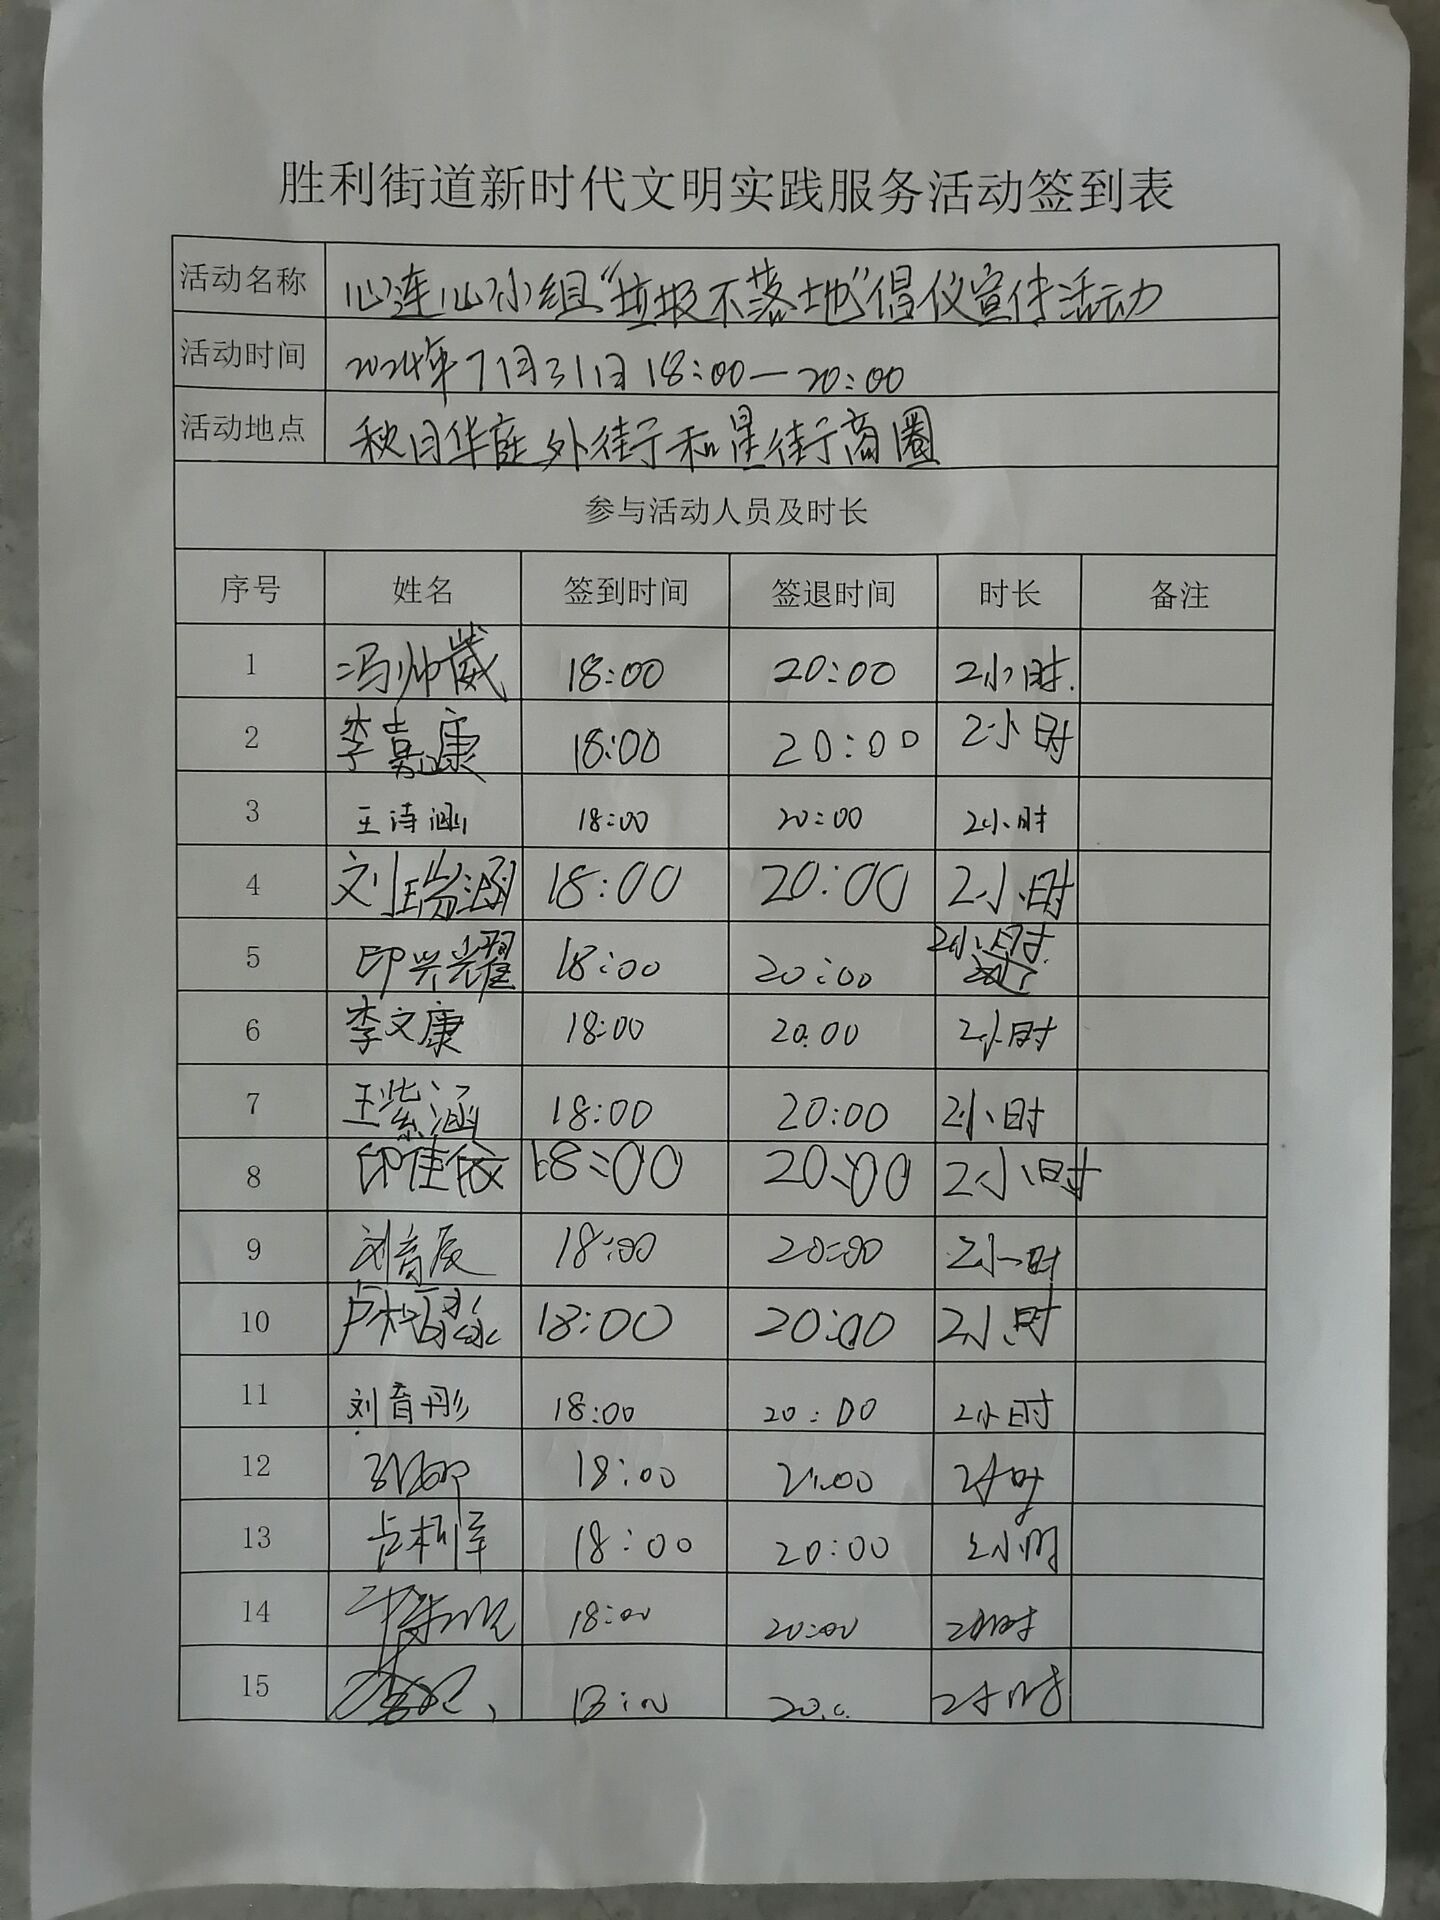 胜利街道新时代文明实践服务活动签到表
活动名称 心连心小组“垃圾不落地”倡仪宣传活动
活动时间 2024年7月31日18:00—20:00
活动地点 秋月华庭外街和星街商圈
参与活动人员及时长
序号 姓名 签到时间 签退时间 时长 备注
1 冯帅葳 18:00 20:00 2小时.
2 李嘉康 18:00 20:00 2小时
3 王诗涵 18:00 20:00 2小时
4 刘瑞涵 18:00 20:00 2小时
5 印兴耀 18:00 20:00 2小时
6 李文康 18:00 20:00 2小时
7 王紫涵 18:00 20:00 2小时
8 印佳依 18:00 20:00 2小时
9 刘育辰 18:00 20:00 2小时
10 18:00 20:00 2小时
11 刘育彤 18:00 20:00 2小时
12 18:00 20:00 2小时
13 18:00 20:00 2小时
14 18:00 20:00 2小时
15 2小时